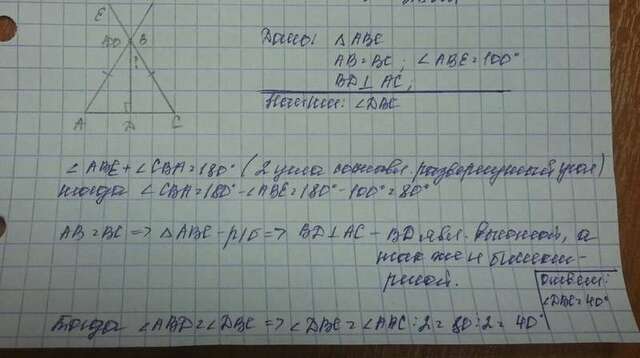 E
100
B
A
D
C
Дано: △ABC
AB=BC; ∠ABE=100°
BD⊥AC;
Найти: ∠DBC
∠ABE+∠CBA=180° (2 угла составл. развернутый угол)
тогда ∠CBA=180°-∠ABE=180°-100°=80°
AB=BC => △ABC - р/б => BD⊥AC - BD явл. высотой, а
так же и биссект-
рисой.
Ответ:
∠DBC=40°
Тогда ∠ABD=∠DBC => ∠DBC=∠ABC:2=80:2=40°